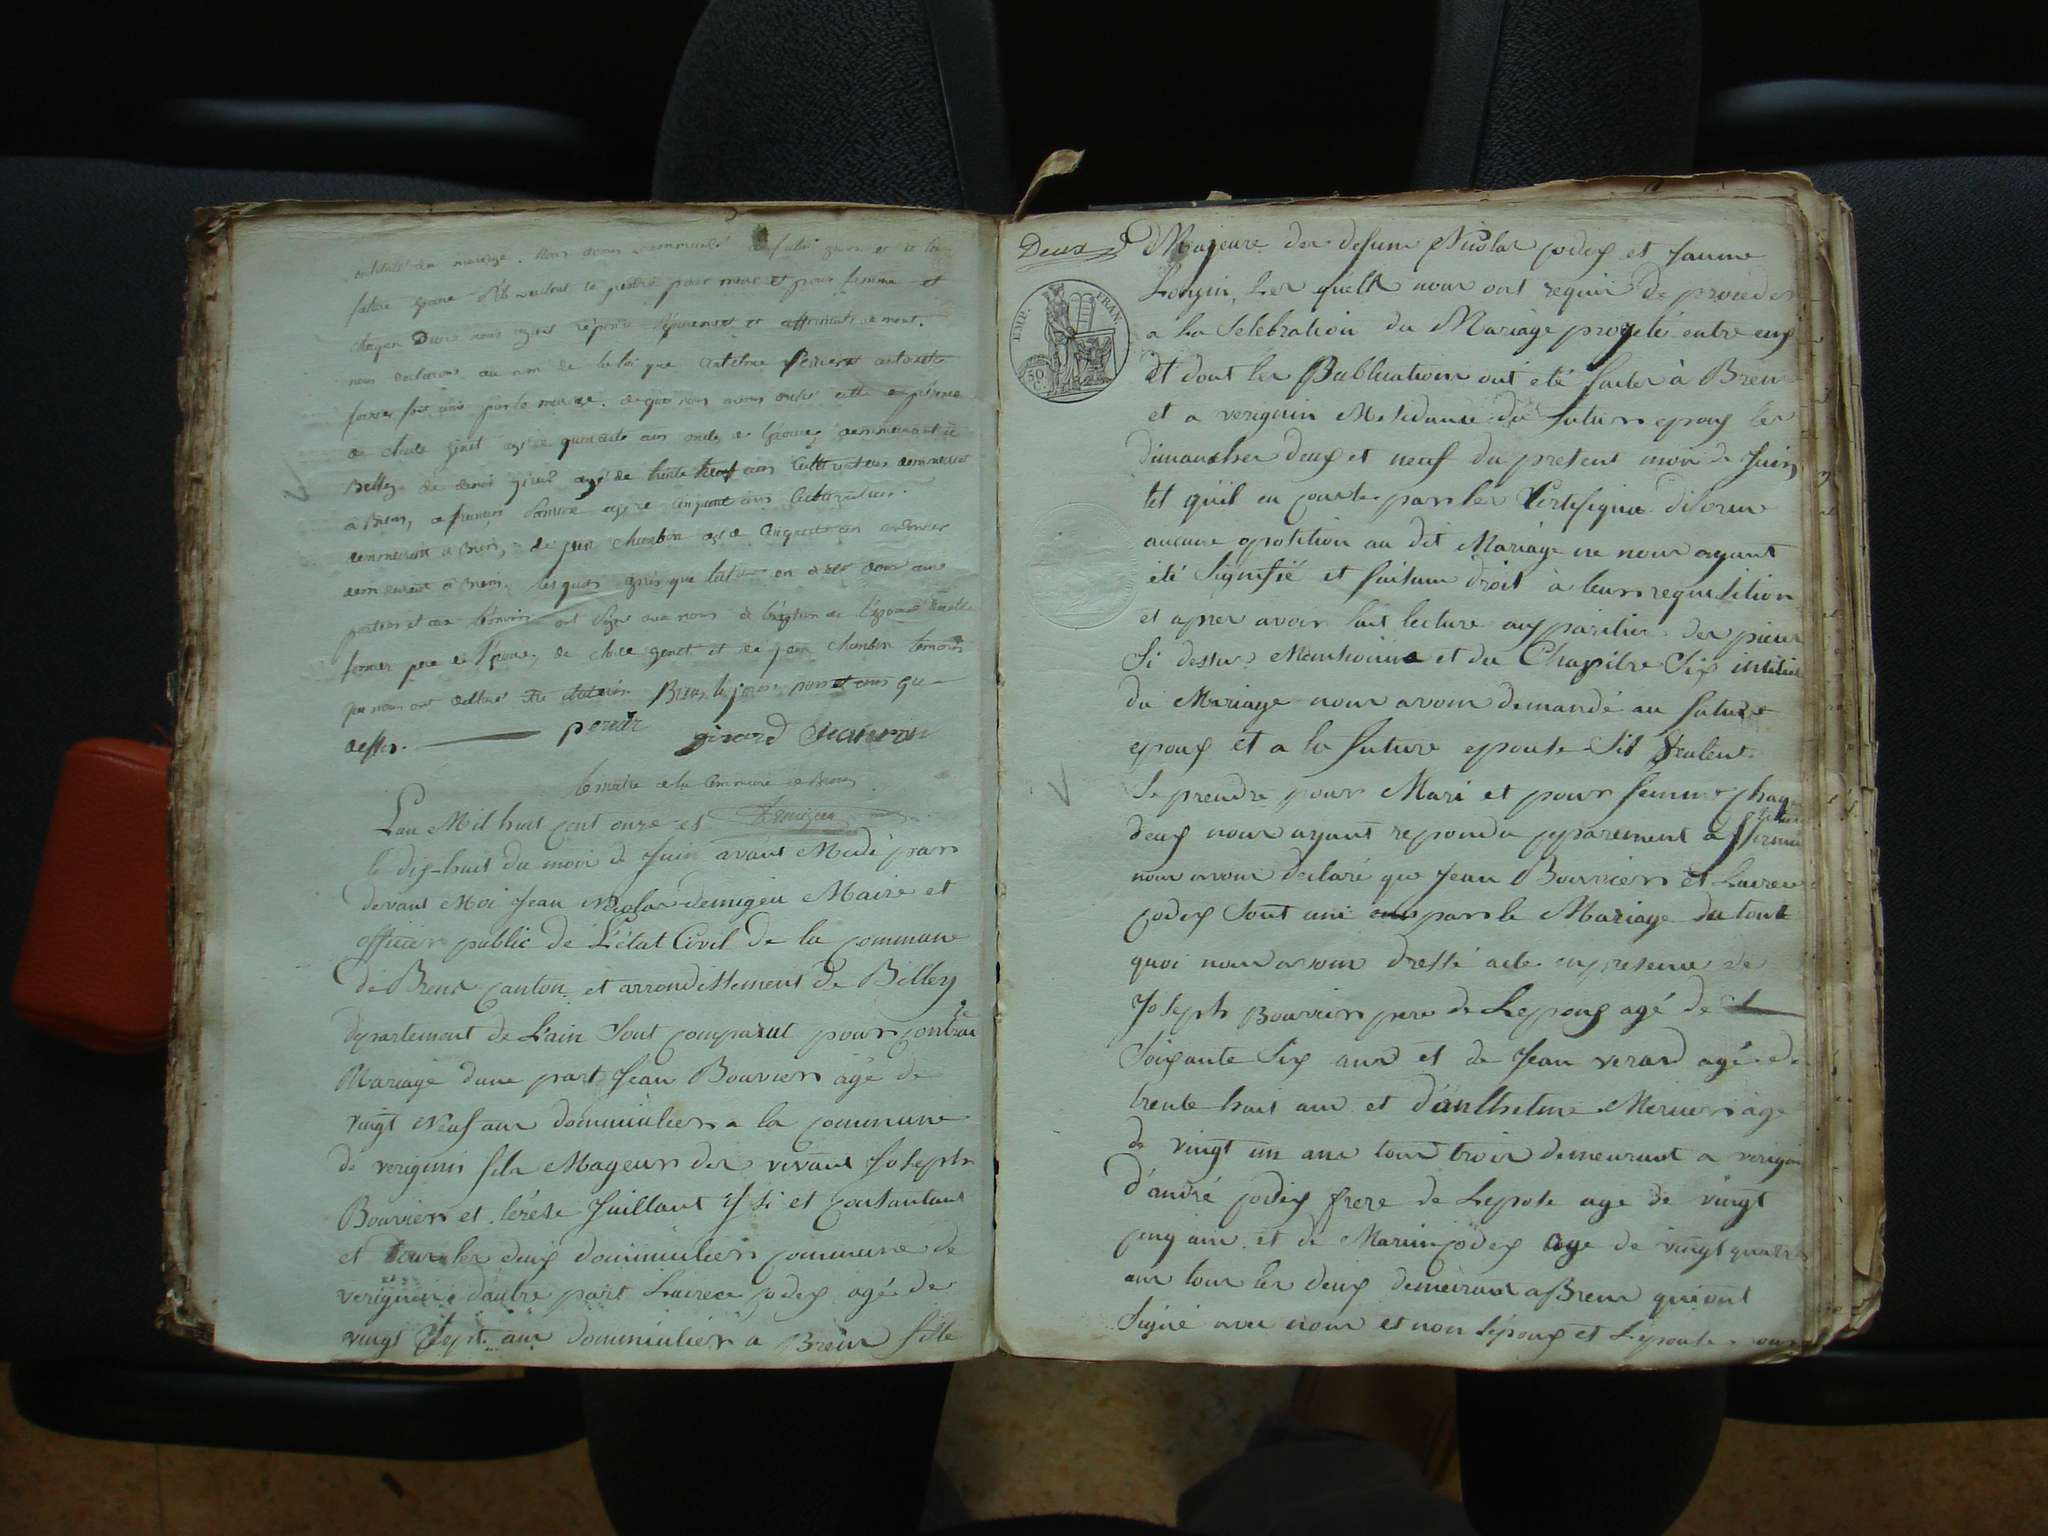 intitulé du mariage. Nous avons demandé au futur époux et à la
future épouse s'ils veulent se prendre pour mari et pour femme et
chacun Deux nous ayant répondu séparément et affirmativement.
nous déclarons au nom de la loi que Antelme Perier et
sont unis par le mariage. de quoi nous avons dressé acte en présence
de claude genet agé de quarante ans oncle de l'épouse, demeurant à
Belley de denis girard agé de trente neuf ans cultivateur demeurant
à Brens, de françois agé de cinquante ans cultivateur
demeurant à Brens, de jean chambon agé de cinquante ans
demeurant à Brens. lesquels après que lecture en a été donnée aux
parties et aux témoins ont signé avec nous à l'exception de l'épouse
fermier pere de l'épouse, de claude genet et de jean chambon temoins
qui nous ont déclaré Brens le jour mois et ans que
dessus. perier girard Jeanron
le maire de la Commune de Brens
Lan Mil huit cent onze et Demigieu
le dix-huit du mois de Juin avant Midi pars
devant Moi Jean Nicolas demigieu Maire et
officier public de L'état Civil de la commune
de Brens Canton et arrondissement de Belley
departement de L'ain Sont comparut pour contrac
Mariage d'une part Jean Bouvier agé de
vingt Neuf ans dommicilier a la commune
de verignin fils Mageur des vivant Joseph
Bouvier et térèse Juillant y si et consantant
et tous les deux dommicilier commune de
verignin et d'autre part Lairece codex agé de
vingt Sept ans dommicilier a Breins fille
Deux
EMP. FRAN.
50 C.
Majeure des defunt Nicolas codex et Janne
Longin, Les quelle nous ont requis de proceder
a La Selebration du Mariage projeté entre eux
et dont les Publications ont été faites à Brens
et a verignin Residance du futur epoux les
dimanches deux et neuf du present mois de Juin
tel qu'il en conste par les Certifiquas disorme
aucune opotition au dit Mariage ne nous ayant
été Signifié et faisant droit à leurs requisition
et apres avoir fait lecture aux parties des pieces
Si dessus Mantionné et du Chapitre Six intitulé
du Mariage nous avons demandé au futur
epoux et a la future epouse Sil veulent
Se prendre pour Mari et pour femme chaqu
deux nous ayant repondu separement a ffirma
nous avons declaré que Jean Bouvier et Lairece
codex Sont uni par le Mariage du tout
quoi nous avons dressé acte en presence de
Joseph Bouvier pere de Lepoux agé de
Soixante Six ans et de Jean verard agé de
trente huit ans et d'anthelme Mercier age
de vingt un ans tous trois demeurant a verignin
d'andré codex frere de Lepose age de vingt
cinq ans et de Marin codex age de vingt quatre
ans tous les deux demeurant a Brens qui ont
Signé avec nous et non Lépoux et Lepouse